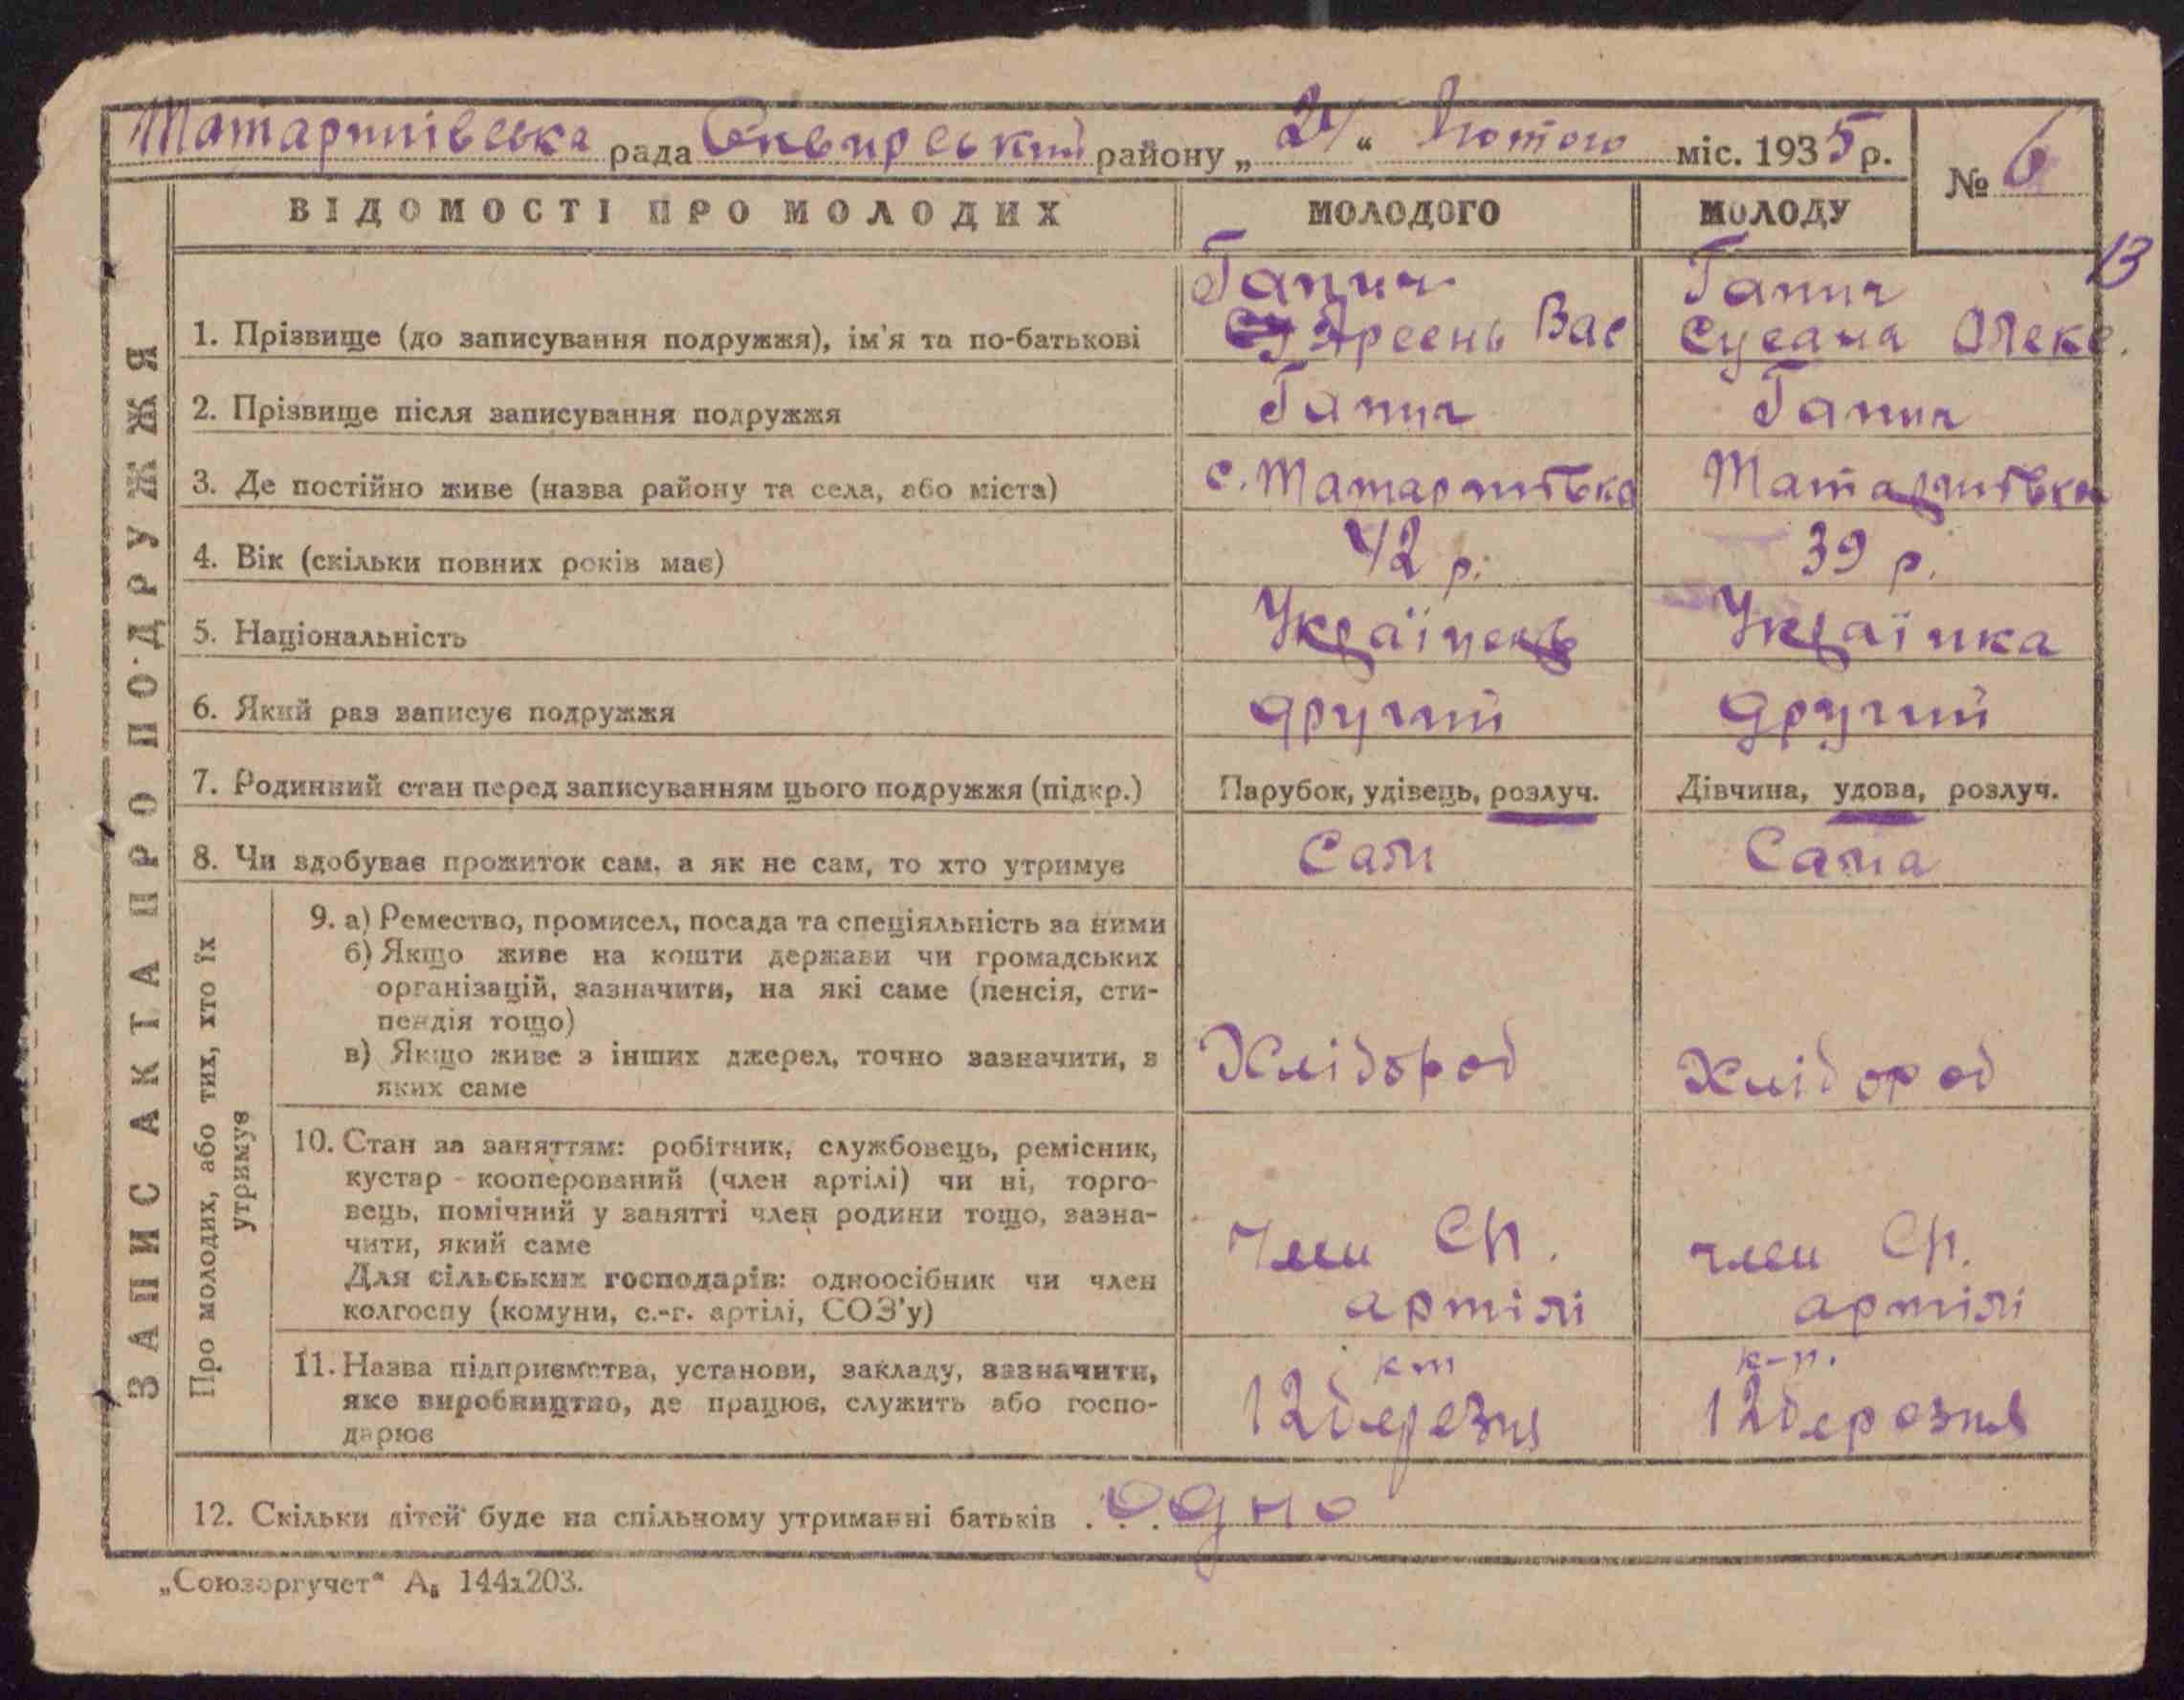 Татаринівська рада Сквирський району „ 24 “ Лютого міс. 1935 р.
№ 6
13
ВІДОМОСТІ ПРО МОЛОДИХ МОЛОДОГО МОЛОДУ
ЗАПИС АКТА ПРО ПО-ДРУЖЖЯ
Гапич Гапич
1. Прізвище (до записування подружжя), ім'я та по-батькові Арсень Вас Сусана Олекс.
2. Прізвище після записування подружжя Гапич Гапич
3. Де постійно живе (назва району та села, або міста) с. Татаринівка Татаринівка
4. Вік (скільки повних років має) 42 р. 39 р.
5. Національність Українець Українка
6. Який раз записує подружжя другий другий
7. Родинний стан перед записуванням цього подружжя (підкр.) Парубок, удівець, розлуч. Дівчина, удова, розлуч.
8. Чи здобуває прожиток сам, а як не сам, то хто утримує Сам Сама
Про молодих, або тих, хто їх
утримує
9. а) Ремество, промисел, посада та спеціяльність за ними
б) Якщо живе на кошти держави чи громадських
організацій, зазначити, на які саме (пенсія, сти-
пендія тощо)
в) Якщо живе з інших джерел, точно зазначити, з Хлібороб Хлібороб
яких саме
10. Стан за заняттям: робітник, службовець, ремісник,
кустар - кооперований (член артілі) чи ні, торго-
вець, помічний у занятті член родини тощо, зазна-
чити, який саме член СГ. член СГ.
Для сільських господарів: одноосібник чи член
колгоспу (комуни, с.-г. артілі, СОЗ'у) артілі артілі
11. Назва підприємства, установи, закладу, зазначити,
яке виробництво, де працює, служить або госпо- 12 березня 12 березня
дарює
12. Скільки дітей буде на спільному утриманні батьків . . . одно
„Союзоргучет“ А₅ 144х203.